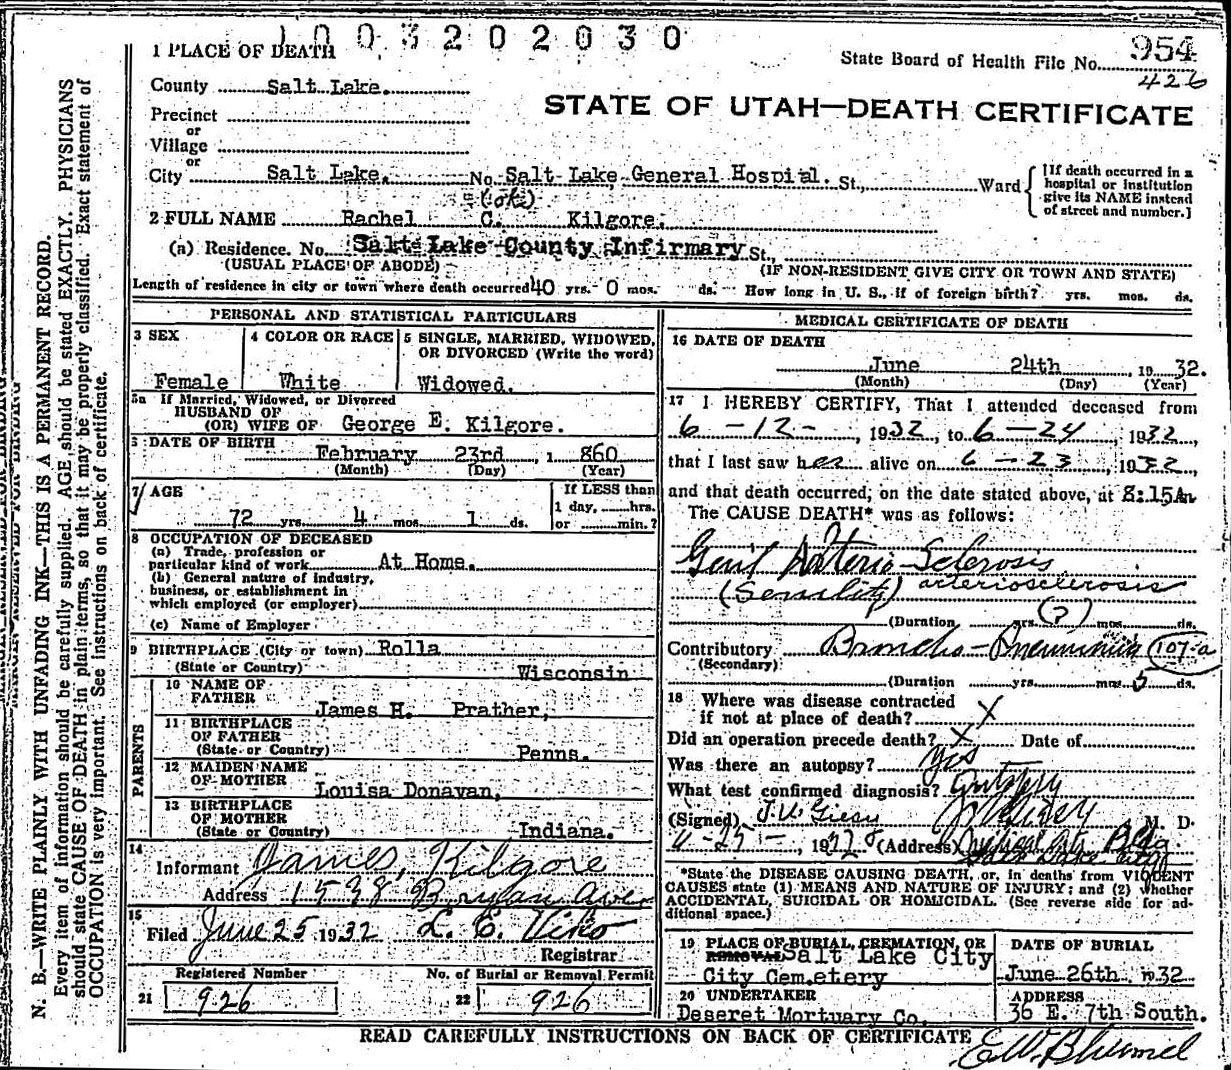 1003202030
1 PLACE OF DEATH
State Board of Health File No. 954
426
County Salt Lake.
STATE OF UTAH—DEATH CERTIFICATE
Precinct
or
Village
or
City Salt Lake. No. Salt Lake General Hospital. St., Ward
[If death occurred in a hospital or institution give its NAME instead of street and number.]
(ok)
2 FULL NAME Rachel C. Kilgore.
(a) Residence. No. Salt Lake County Infirmary St.,
(USUAL PLACE OF ABODE) (IF NON-RESIDENT GIVE CITY OR TOWN AND STATE)
Length of residence in city or town where death occurred 40 yrs. 0 mos. ds. How long in U. S., if of foreign birth? yrs. mos. ds.
PERSONAL AND STATISTICAL PARTICULARS
3 SEX
Female
4 COLOR OR RACE
White
5 SINGLE, MARRIED, WIDOWED, OR DIVORCED (Write the word)
Widowed.
5a If Married, Widowed, or Divorced
HUSBAND OF
(OR) WIFE OF George E. Kilgore.
6 DATE OF BIRTH
February 23rd, 1 860
(Month) (Day) (Year)
7 AGE
72 yrs. 4 mos. 1 ds.
If LESS than
1 day, hrs.
or min.?
8 OCCUPATION OF DECEASED
(a) Trade, profession or
particular kind of work At Home.
(b) General nature of industry,
business, or establishment in
which employed (or employer)
(c) Name of Employer
9 BIRTHPLACE (City or town) Rolla
(State or Country) Wisconsin
PARENTS
10 NAME OF
FATHER James H. Prather,
11 BIRTHPLACE
OF FATHER
(State or Country) Penns.
12 MAIDEN NAME
OF MOTHER Louisa Donavan,
13 BIRTHPLACE
OF MOTHER
(State or Country) Indiana.
14
Informant James Kilgore
Address 1538 Bryan Ave
15
Filed June 25 1932 L. E. Viko
Registrar
Registered Number
21 926
No. of Burial or Removal Permit
22 926
MEDICAL CERTIFICATE OF DEATH
16 DATE OF DEATH
June 24th, 19 32.
(Month) (Day) (Year)
17 I HEREBY CERTIFY, That I attended deceased from
6-12-, 1932, to 6-24, 1932,
that I last saw her alive on 6-23, 1932,
and that death occurred, on the date stated above, at 8:15 Am
The CAUSE DEATH* was as follows:
Gen'l Arterio-Sclerosis
(Senility) arteriosclerosis
(Duration yrs. (?) mos. ds.
Contributory Broncho-Pneumonia 107-a
(Secondary)
(Duration yrs. mos. 5 ds.
18 Where was disease contracted
if not at place of death? X
Did an operation precede death? X Date of
Was there an autopsy? yes
What test confirmed diagnosis? Autopsy
(Signed) J.U. Giesy M. D.
(Address) Medical Arts Bldg.
Salt Lake City
*State the DISEASE CAUSING DEATH, or, in deaths from VIOLENT
CAUSES state (1) MEANS AND NATURE OF INJURY; and (2) whether
ACCIDENTAL, SUICIDAL OR HOMICIDAL. (See reverse side for ad-
ditional space.)
19 PLACE OF BURIAL, CREMATION, OR
REMOVAL Salt Lake City
City Cemetery
DATE OF BURIAL
June 26th. 1932
20 UNDERTAKER
Deseret Mortuary Co.
ADDRESS
36 E. 7th South.
READ CAREFULLY INSTRUCTIONS ON BACK OF CERTIFICATE
N. B.—WRITE PLAINLY WITH UNFADING INK—THIS IS A PERMANENT RECORD.
Every item of information should be carefully supplied. AGE should be stated EXACTLY. PHYSICIANS
should state CAUSE OF DEATH in plain terms, so that it may be properly classified. Exact statement of
OCCUPATION is very important. See instructions on back of certificate.